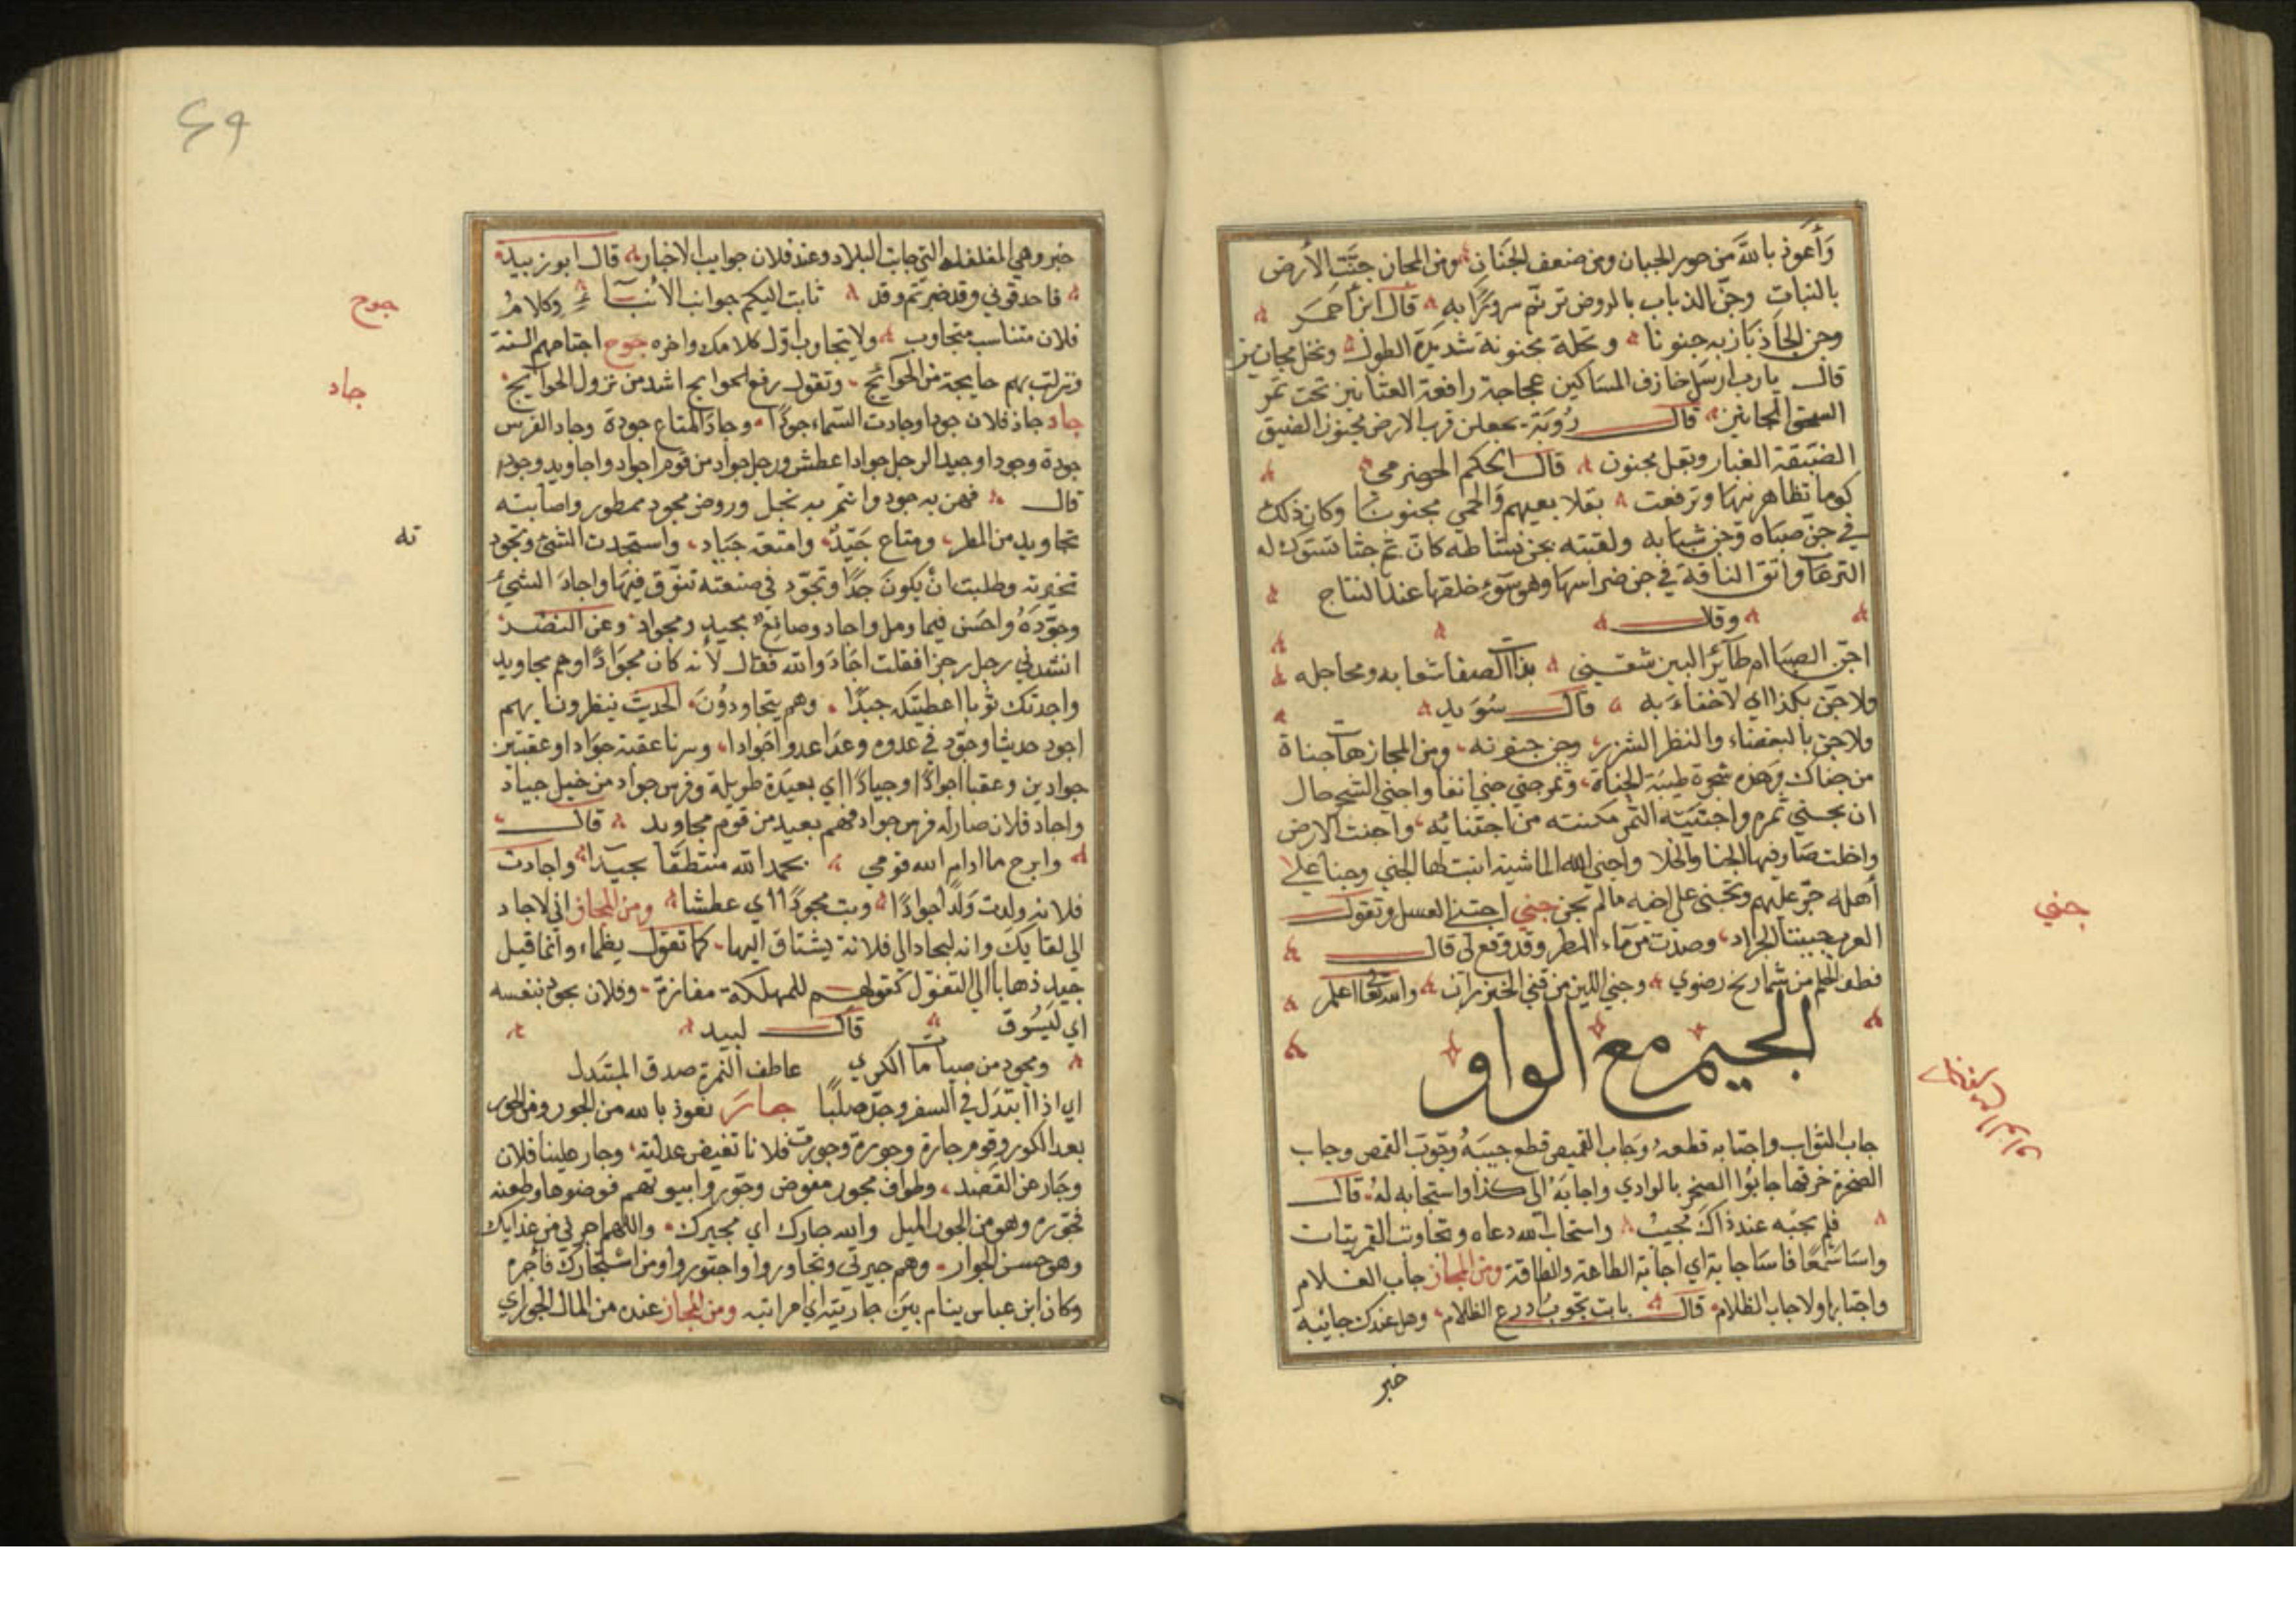 وَأَعوذ بالله من خور الجبان ومن ضعف الجَنَان ومن المجاز جنَّت الأرض
بالنبات وجنّ الذباب بالروض ترنّم سرورًا به قال ابن أحمر
وجن الخازباز به جنونا ونخلة مجنونة شديدة الطول ونخل مجانين
قال يا رب ارسل خارف المساكين عجاجة رافعة العثانين تحت تمر
السحق المجانين قال رُؤبة يجعلن قرب الارض مجنون الضيق
الضيقة الغبار وبقل مجنون قال الحكم الحضرمي
كوما تظاهر نيها وترفعت بقلا بعيهم والحمي مجنونا وكان ذلك
في جنّ صباه وجن شبابه ولقيته بجن نشاطه كان ثم جنا تستوك له
واتق الناقة في جن ضراسها وهو سَوء خلقها عند النتاج
وقال
اجنّ الصبا ام طائر البين شفني بذات الصفا شعابه ومحاجله
ولا جنّ بكذا اي لا خفاء به قال سُوَيد
ولا جن بالبغضاء والنظر الشزر وجن جنونه ومن المجاز هات جناة
من جناك وهذه شجرة طيبة الجناة وثمر جني جني انفا واجني الشجر حال
ان يجني ثمره واجتنيته الثمر مكنته من اجتنائه واجنت الارض
واخلت صار فيها الجنا والخلا واجني الله الماشية انبت لها الجني وجنا على
أهله جرّ عليهم وتجنى على اخيه ما لم يجن جني اجتني العسل وتقول
العرب جنينا الجراد وصدت من ماء المطر وقد وقع لي قال
قطف الحلم من شماريخ رضوي وجني اللين من قني الخيزران والله تعالى اعلم
الجيم مع الواو
جاب الثواب واجتابه قطعه وجاب القميص قطع جيبَهُ وجوّب القمص وجاب
الصخرة خرقها جابُوا الصخر بالوادي واجابَهُ الى كذا واستجابه لهُ قال
فلم يجبْه عند ذاك مجيبُ واستجاب الله دعاه وتجاوبت القمريتات
واسا سمعًا فاسا جابة اي اجابة الطاعة والطاقة ومن المجاز جاب الفلام
واجتابها ولا جاب الظلام قال باتت تجوبُ ادرع الظلام وهل عندك جائبة
خبر
جني
خبر وهي المغلغلة التي جابت البلاد وعند فلان جوايب الاخبار قال ابو زبيد
فاصدقوني وقد خبرتم وقد ثابت اليكم جوانب الأنبآ وكلامُ
فلان متناسب متجاوب ولا يتجاوب اوّل كلامك واخره جوح اجتاحهم السنة
ونزلت بهم جايحة من الجوائح وتقول رفع الحوايج اشد من نزول الجوائح
جاد جاد فلان جودا وجادت السماء جودًا وجاد المتاع جودة وجاد الفرس
جودة وجودا وجيد الرجل جوادا عطش ورجل جواد من قوم اجواد واجاويد وجود
قال فهن به جود وانتم به نجل وروض مجود ممطور واصابته
تجاويد من المطر ومتاع جَيّدٌ وامتعة جياد واستجدت الشئ وتجود
تخيرته وطلبت انْ يكونَ جيّدًا وتجوّد في صنعته تنوّق فيها واجادَ الشيء
وجوّدَهُ واحسَن فيما وصل واجاد وصانع مجيد ومجواد وعن النضر
انشدني رجل رجزا فقلت اجَادَ والله فقال لأنه كان مجوَادًا وهم مجاويد
واجدتك ثوبا اعطيتكه جيّدًا وهم يتجاودُونَ الحديث ينظرون ايهم
اجود حديثا وجوّد في عدوه وعدا عدوا جَوادا وسرنا عقبة جوَادا وعقبتين
جوادين وعقبا اجوادًا وجيادًا اي بعيدَة طويلة وفرس جواد من خيل جياد
واجاد فلان صار له فرس جواد فهم بعيد من قوم مجاويد قال
وابرح ما ادام الله قومي بحمد الله منتطقًا مجيدا واجادت
فلانة ولدت ولدًا جوادًا وبت مجودًا اي عطشا ومن المجاز اني لاجاد
الي لقايك وانه ليجاد الى فلانة يشتاق اليها كما تقول يظماء وانما قيل
جيد ذهابا الي التفوّل كقولهم للمهلكة مفازة وفلان يجود بنفسه
اي لَيَسُوق قال لبيد
ومجود من صبابات الكري عاطف النمرق صدق المبتدل
اي اذا ابتدل في السفر وجد صلبًا جارَ نعوذ بالله من الجور ومن الحور
بعد الكور وقوم جارة وجورة وجورت فلانا نقيض عدلته وجار علينا فلان
وجَار عن القصد وطراف مجور مقوض وجوّروا بيوتهم قوضوها وطعنه
فجوّره وهو من الجور الميل والله جارك اي مجيرك واللهم اجرني من عذابك
وهو حسن الجوار وهم جيرتي وتجاوروا واجتوروا ومن استجارك فأجره
وكان ابن عباس ينام بين جارتيه اي امراتيه ومن المجاز عنده من المال الجواري
جوح
جاد
ته
٤٩